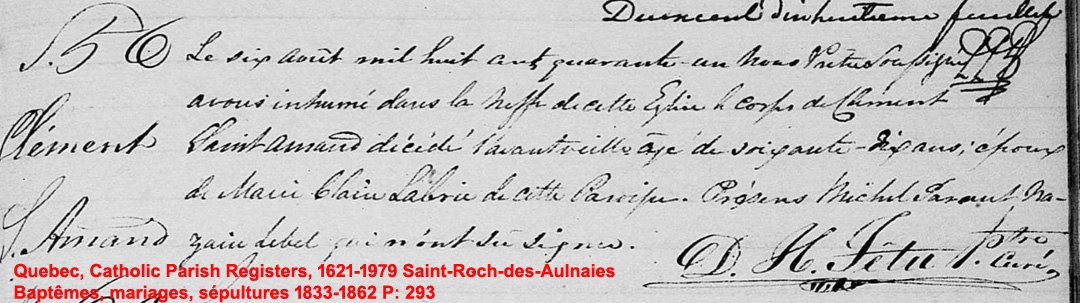 Deux cent dixhuitieme feuillet
S. 56 Le six août mil huit cent quarante-un nous Prêtre Soussigné
avons inhumé dans la Neffe de cette Eglise le corps de Clement
Clément Saint Amand décédé l'avantveille agé de soixante-dix ans, époux
de Marie Claire Labrie de cette Paroisse. Présens Michel Parant Na-
S. Amand zaire lebel qui n'ont su signer.
D. H. Têtu Ptre
Curé
Quebec, Catholic Parish Registers, 1621-1979 Saint-Roch-des-Aulnaies
Baptêmes, mariages, sépultures 1833-1862 P: 293